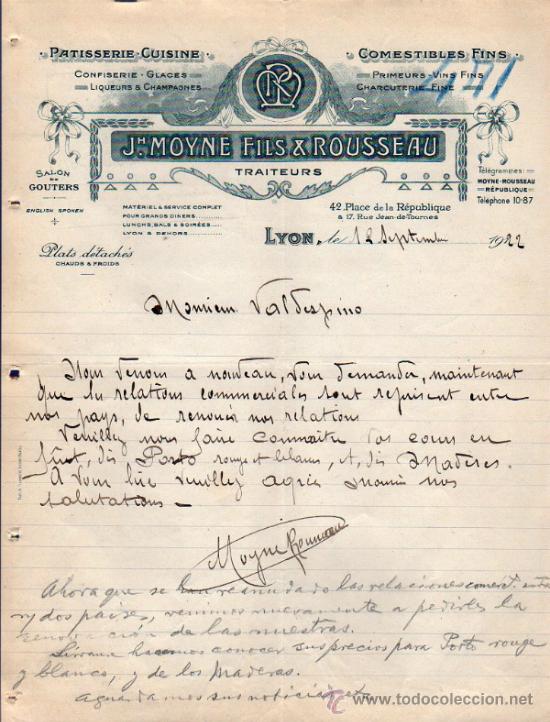 PATISSERIE·CUISINE
COMESTIBLES FINS
CONFISERIE · GLACES
PRIMEURS·VINS FINS
LIQUEURS & CHAMPAGNES
CHARCUTERIE FINE
JH MOYNE FILS & ROUSSEAU
TRAITEURS
SALON
DE
GOUTERS
ENGLISH SPOKEN
Plats détachés
CHAUDS & FROIDS
MATÉRIEL & SERVICE COMPLET
POUR GRANDS DINERS
LUNCHS, BALS & SOIRÉES
LYON & DEHORS
42, Place de la République
& 17, Rue Jean-de-Tournes
Télégrammes:
MOYNE-ROUSSEAU
RÉPUBLIQUE
Téléphone 10-87
LYON, le 12 Septembre 1922
Monsieur Valdespino
Nous venons a nouveau, vous demander, maintenant
que les relations commerciales sont reprises entre
nos pays, de renouer nos relations
Veuillez nous faire connaitre vos cours en
fût, des Porto rouge et blancs, et, des Madères.
A vous lire veuillez agréer Monsieur nos
salutations -
Moyne Rousseau
Ahora que se han reanudado las relaciones comerc.
dos paises, venimos nuevamente a pedirles la
renovación de las nuestras.
Sirvanse hacernos conocer sus precios para Porto rouge
y blanco, y de los Maderas.
Aguardamos sus noticias etc
www.todocoleccion.net